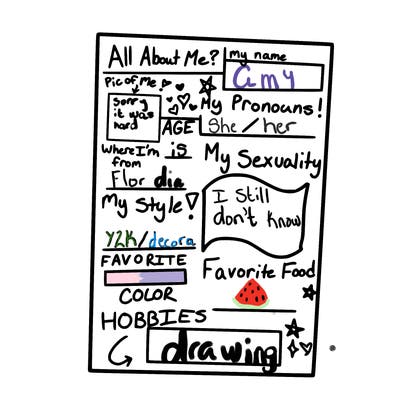 All About Me?
my name
amy
Pic of Me!
sorry
it was
hard
My Pronouns!
AGE
She/her
Where I'm is
from
Flor dia
My Sexuality
My Style!
I Still
don't know
Y2K/decora
FAVORITE
COLOR
Favorite Food
HOBBIES
drawing